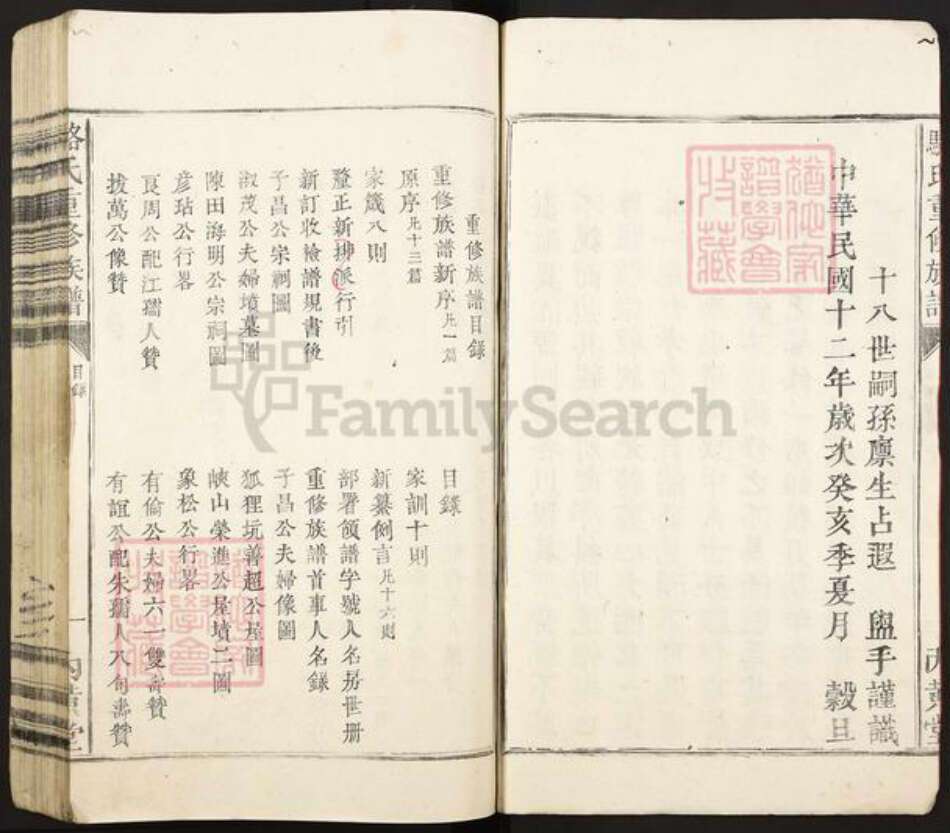 駱氏重修族譜
丙黃堂
十八世嗣孫廪生占遐 盥手謹識
中華民國十二年歲次癸亥季夏月 穀旦
重修族譜目錄
重修族譜新序凡一篇
目錄
原序凡十三篇
家訓十則
家箴八則
新纂例言凡十六則
釐正新排派行引
部署領譜字號人名房世册
新訂收檢譜規書後
重修族譜首事人名錄
子昌公宗祠圖
子昌公夫婦像圖
淑茂公夫婦墳墓圖
狐狸坑善超公屋圖
陳田海明公宗祠圖
峽山榮進公屋墳二圖
彦玷公行畧
象松公行畧
良周公配江孺人贊
有倫公夫婦六一雙壽贊
拔萬公像贊
有誼公配朱孺人八旬壽贊
駱氏重修族譜
目錄
一
丙黃堂
FamilySearch